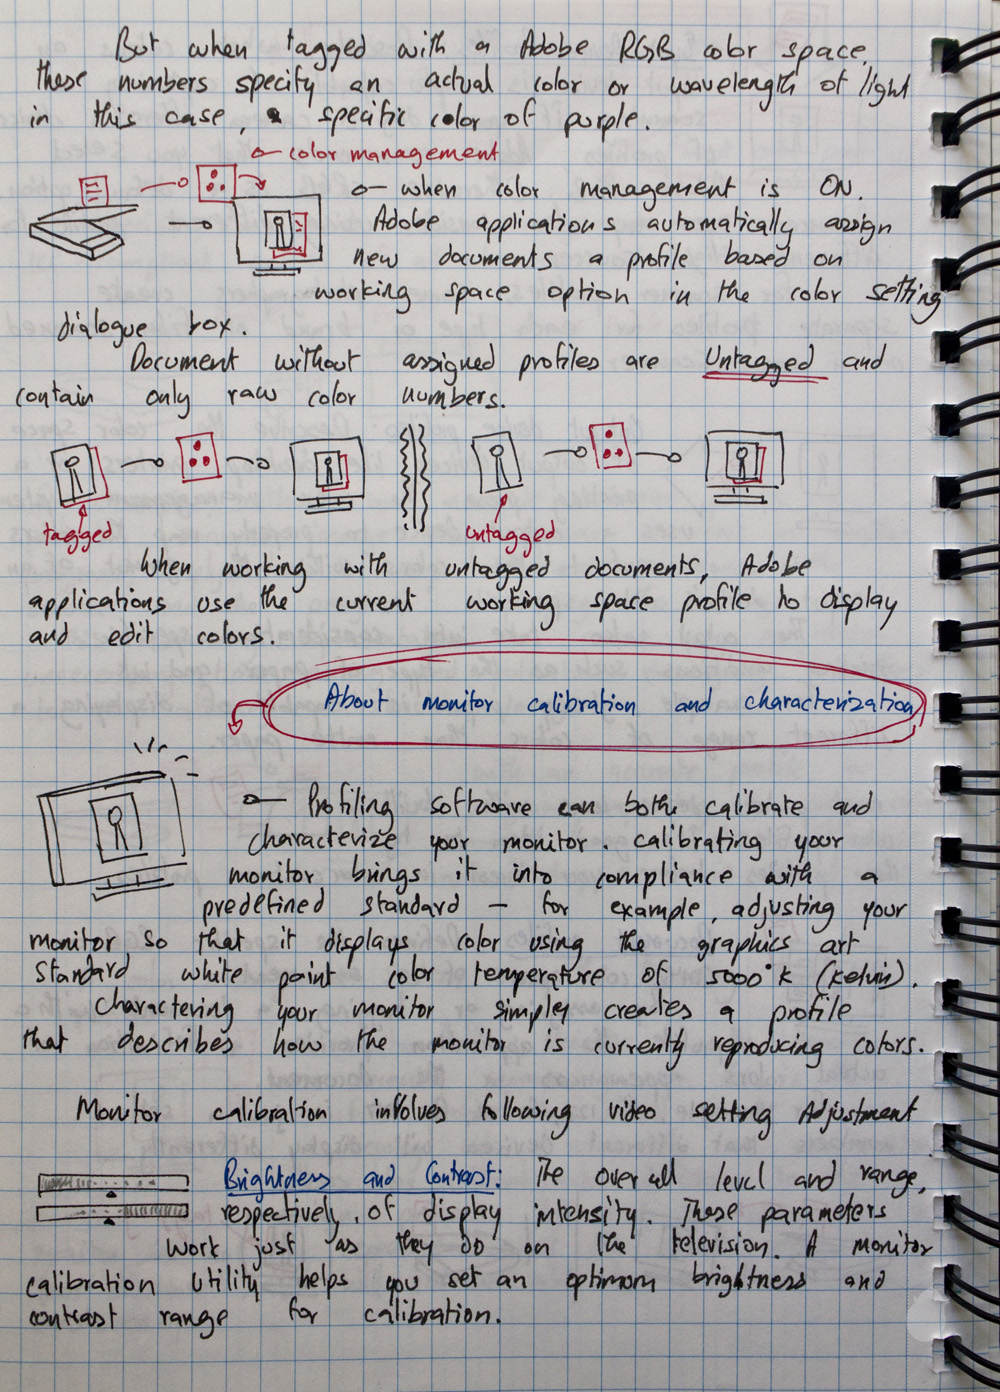 But when tagged with a Adobe RGB color space,
these numbers specify an actual color or wavelength of light
in this case, a specific color of purple.
color management
when color management is ON.
Adobe applications automatically assign
new documents a profile based on
working space option in the color setting
dialogue box.
Document without assigned profiles are Untagged and
contain only raw color numbers.
tagged
untagged
When working with untagged documents, Adobe
applications use the current working space profile to display
and edit colors.
About monitor calibration and characterization
Profiling software can both calibrate and
characterize your monitor. calibrating your
monitor brings it into compliance with a
predefined standard – for example, adjusting your
monitor so that it displays color using the graphics art
standard white point color temperature of 5000°K (Kelvin).
Charactering your monitor simpley creates a profile
that describes how the monitor is currently reproducing colors.
Monitor calibration involves following video setting Adjustment
Brightness and Contrast: The over all level and range,
respectively, of display intensity. These parameters
work just as they do on the television. A monitor
calibration utility helps you set an optimom brightness and
contrast range for calibration.